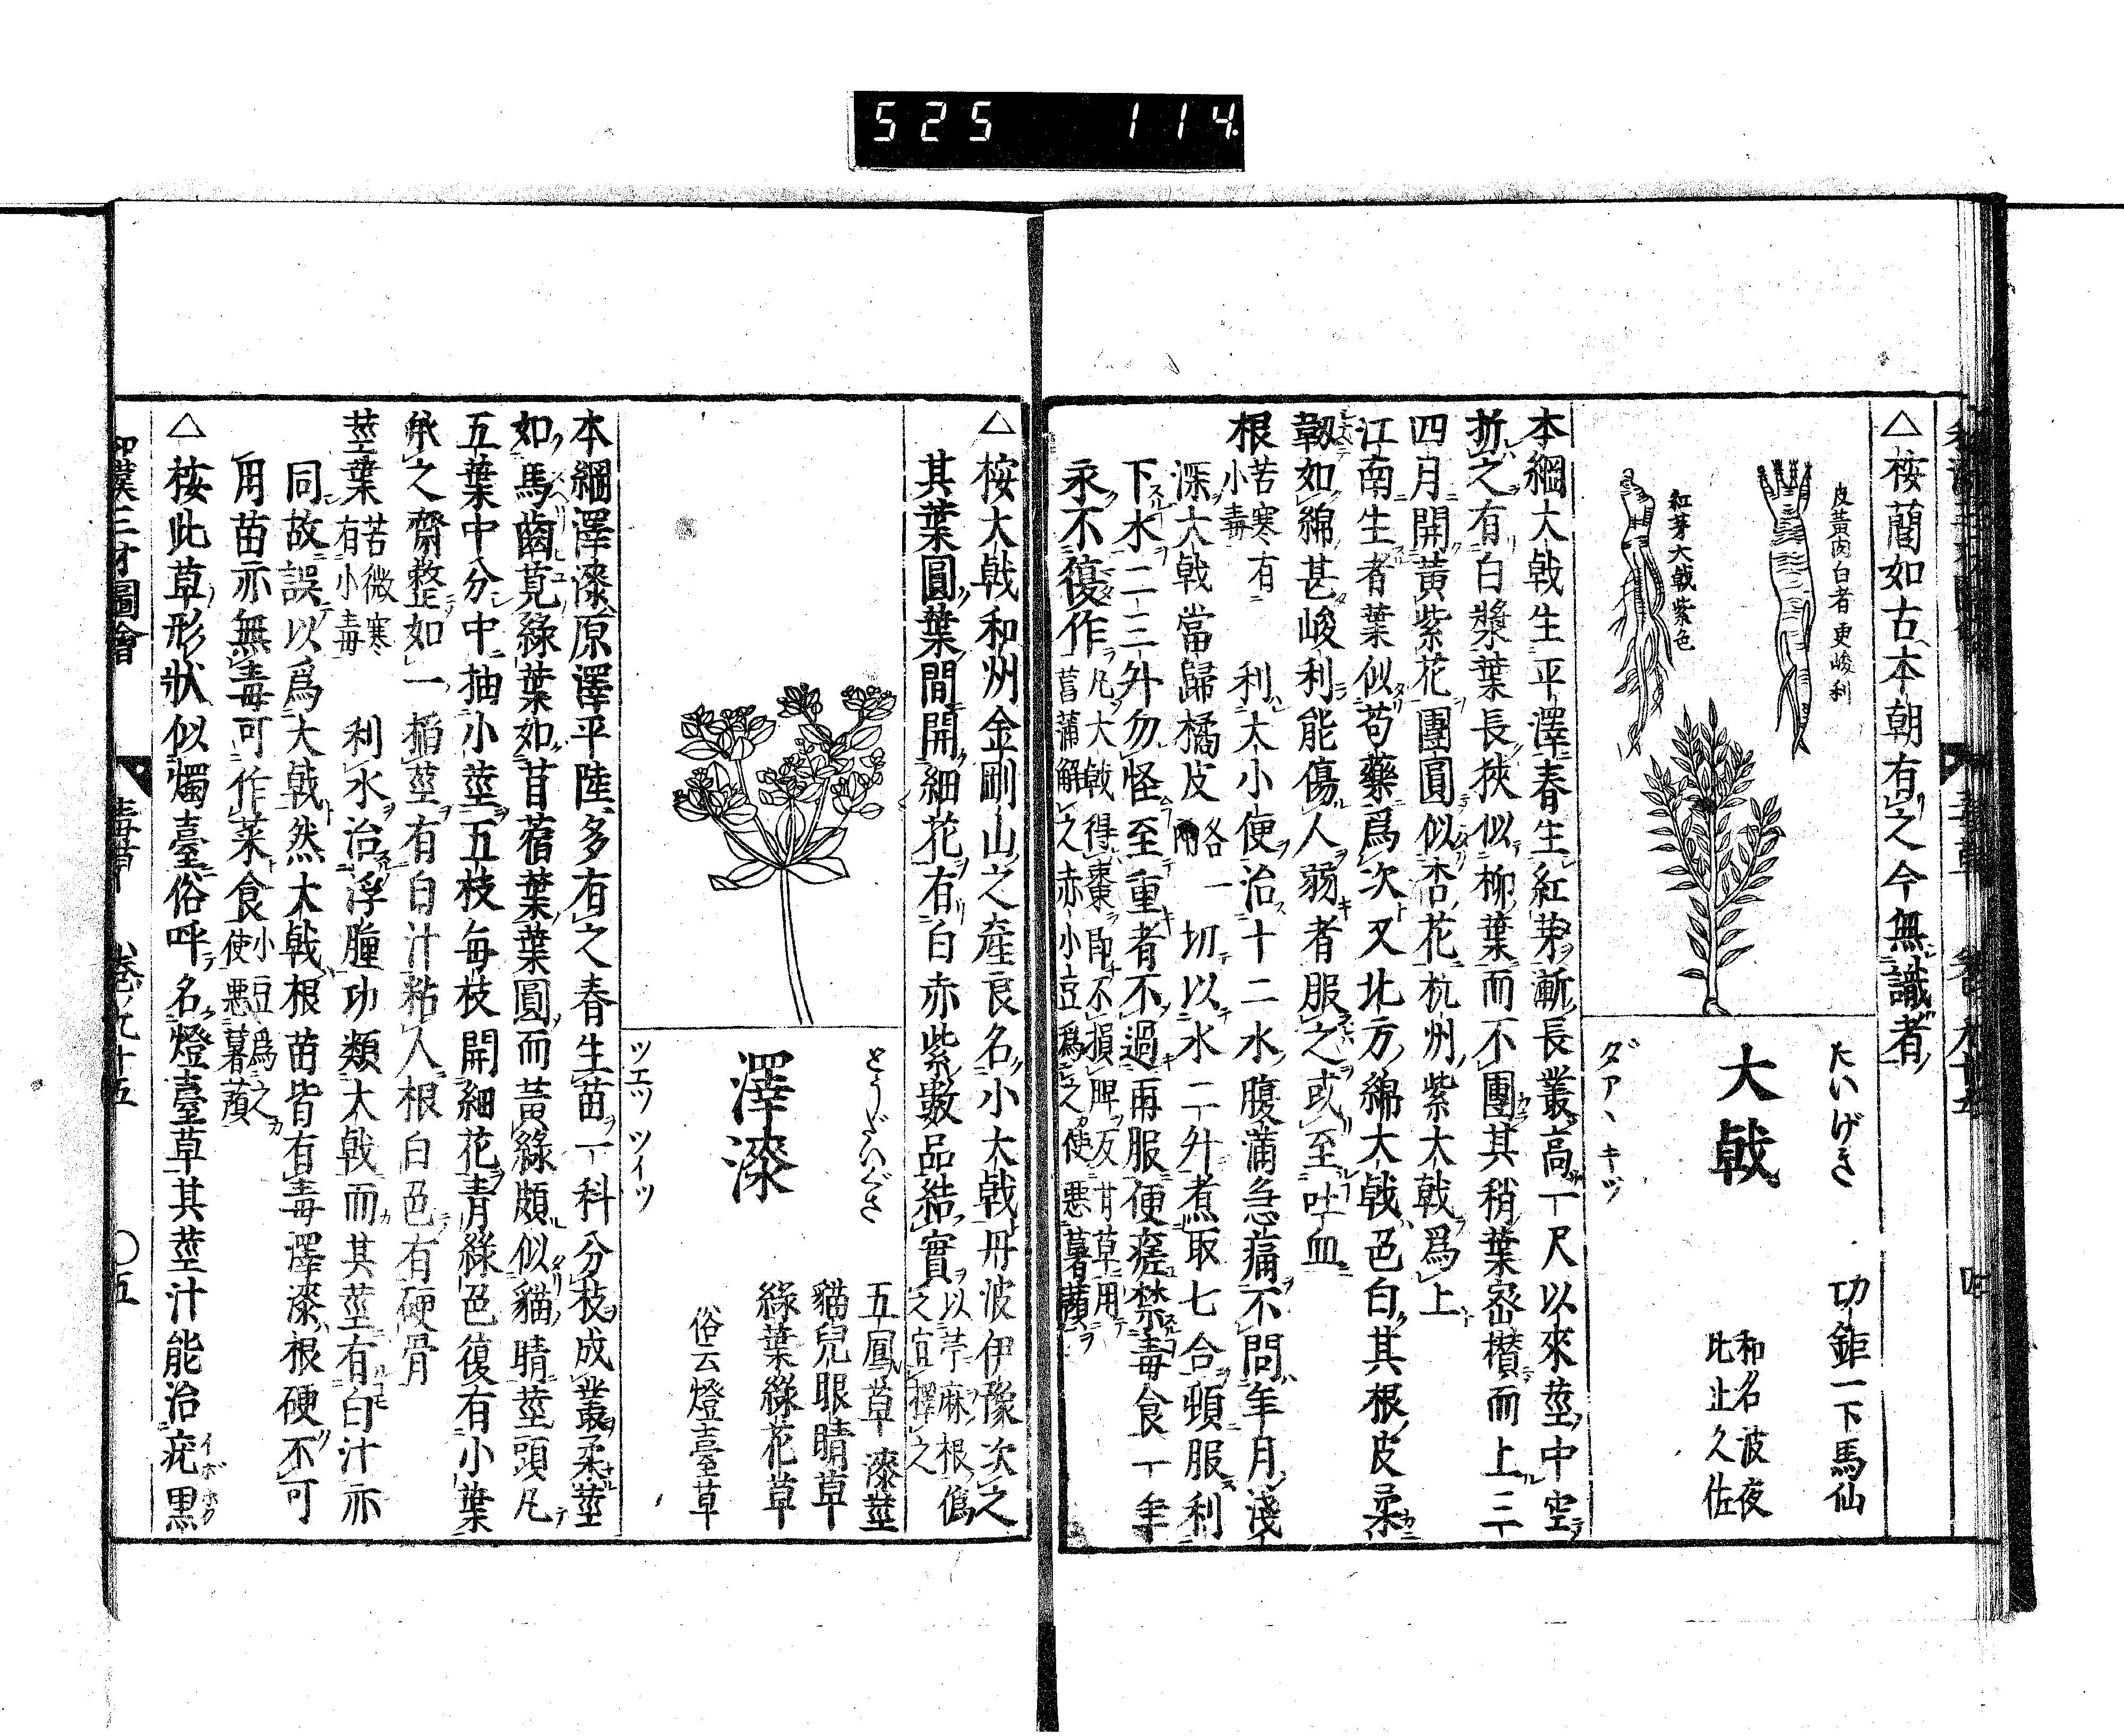 525 114
△桉䕡如古本朝有之今無識者
皮黃肉白者更峻利
紅芽大戟紫色
たいげき
大戟
ダアヽキツ
功鉅一下馬仙
和名波夜
比止久佐
本綱大戟生平澤春生紅芽漸長叢高一尺以來莖中空
折之有白漿葉長狹似柳葉而不團其稍葉宻攅而上三
四月開黃紫花團圓似杏花杭州紫大戟爲上
江南生者葉似芍藥爲次又北方綿大戟色白其根皮柔
韌如綿甚峻利能傷人弱者服之或至吐血
根苦寒有小毒 利大小便治十二水腹滿急痛不問年月淺
深大戟當歸橘皮各一兩切以水二升煮取七合頓服利
下水二三外勿怪至重者不過再服便瘥禁毒食一年
永不復作凡大戟得棗即不損脾反甘草用
菖蒲解之赤小豆爲之使惡暑蕷
△桉大戟和州金剛山之產良名小大戟丹波伊豫次之
其葉圓葉間開細花有白赤紫數品結實以苧麻根僞
之宜擇之
とうだいぐさ
澤漆
ツエツ ツイツ
五鳳草 漆莖
貓兒眼睛草
綠葉綠花草
俗云燈臺草
本綱澤漆原澤平陸多有之春生苗一科分枝成叢柔莖
如馬齒莧綠葉如苜蓿葉葉圓而黃綠頗似貓睛莖頭凡
五葉中分中抽小莖五枝每枝開細花青綠色復有小葉
承之齋整如一搯莖有白汁粘人根白色有硬骨
莖葉苦微寒有小毒 利水治浮腫功類大戟而其莖有白汁亦
同故誤以爲大戟然大戟根苗皆有毒澤漆根硬不可
用苗亦無毒可作菜食小豆爲之
使惡暑蕷
△桉此草形狀似燭臺俗呼名燈臺草其莖汁能治疣黑
和漢三才圖會 毒草 卷ノ九十五 〇五